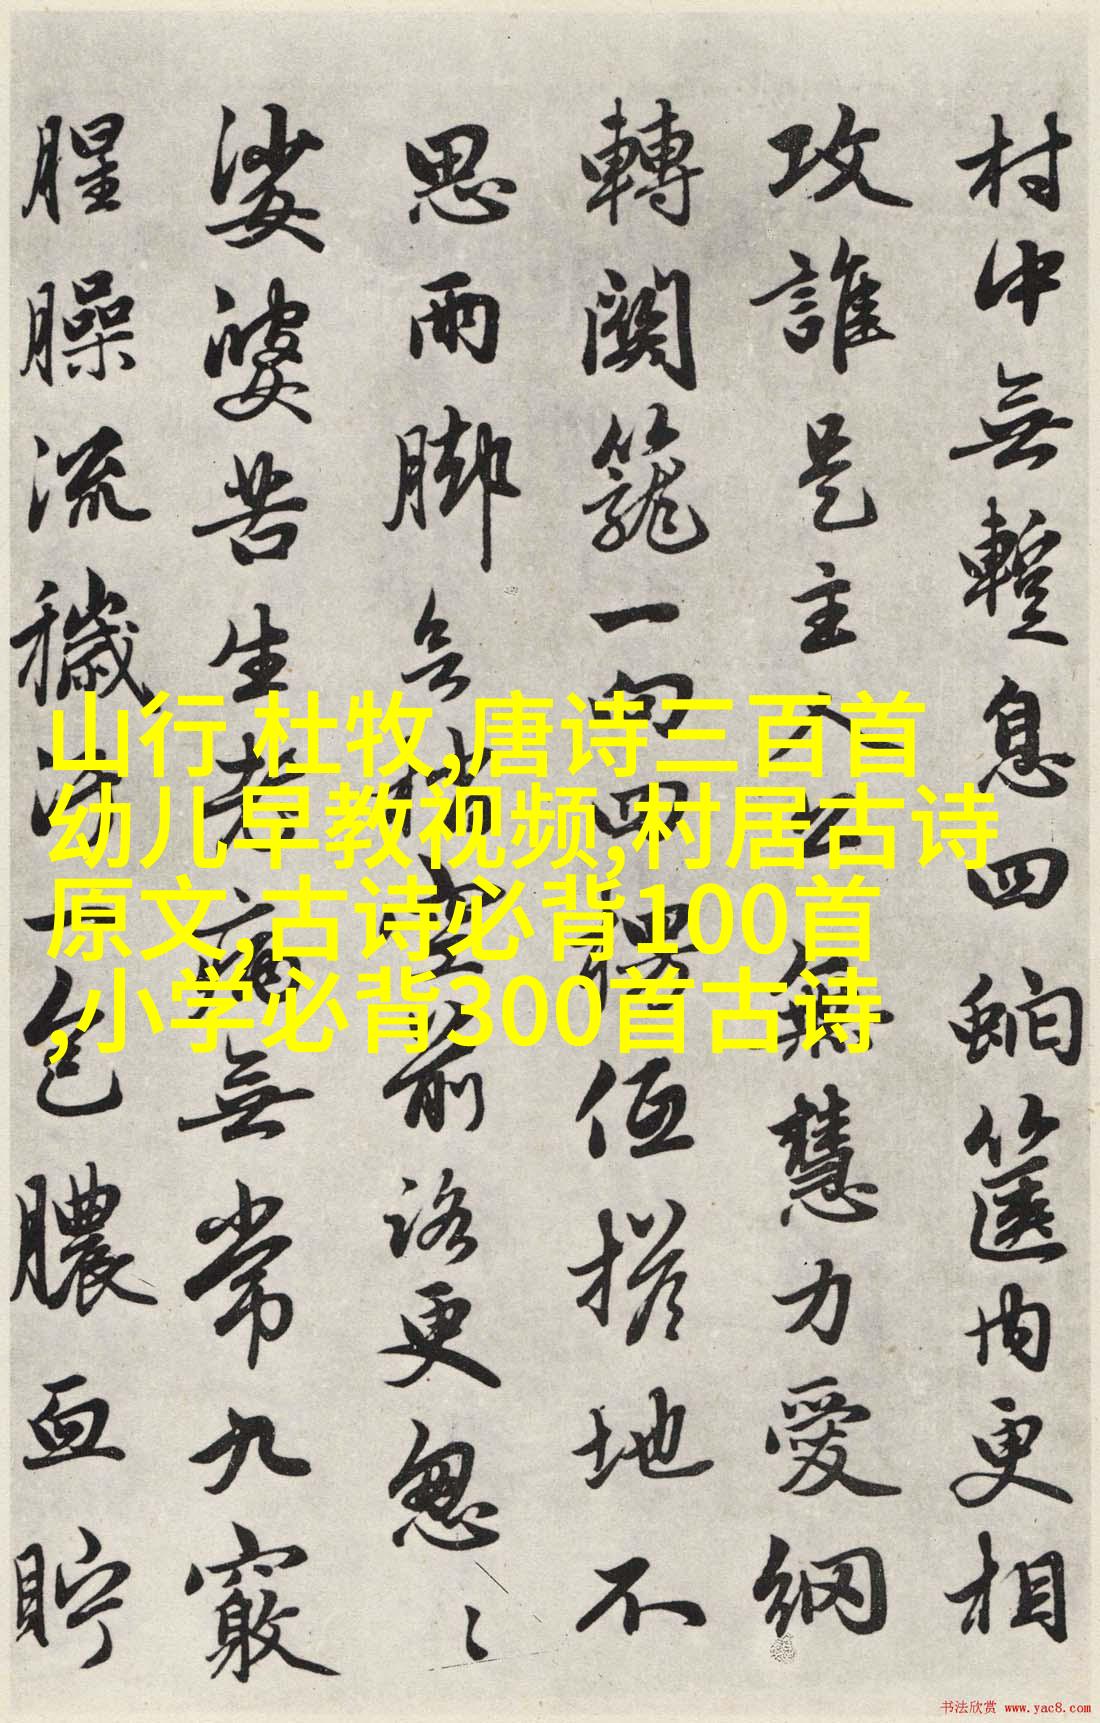 村中無暫息四蛇篋内更相
攻誰是主人公無慧力愛網
轉關籠一句四
地不
思雨脚
空前
路更忽〻
娑婆苦生老病無常九竅
腥臊流穢
包膿血貯
山行 杜牧,唐诗三百首
幼儿早教视频,村居古诗
原文,古诗必背100首
,小学必背300首古诗
书法欣赏 www.yac8.com